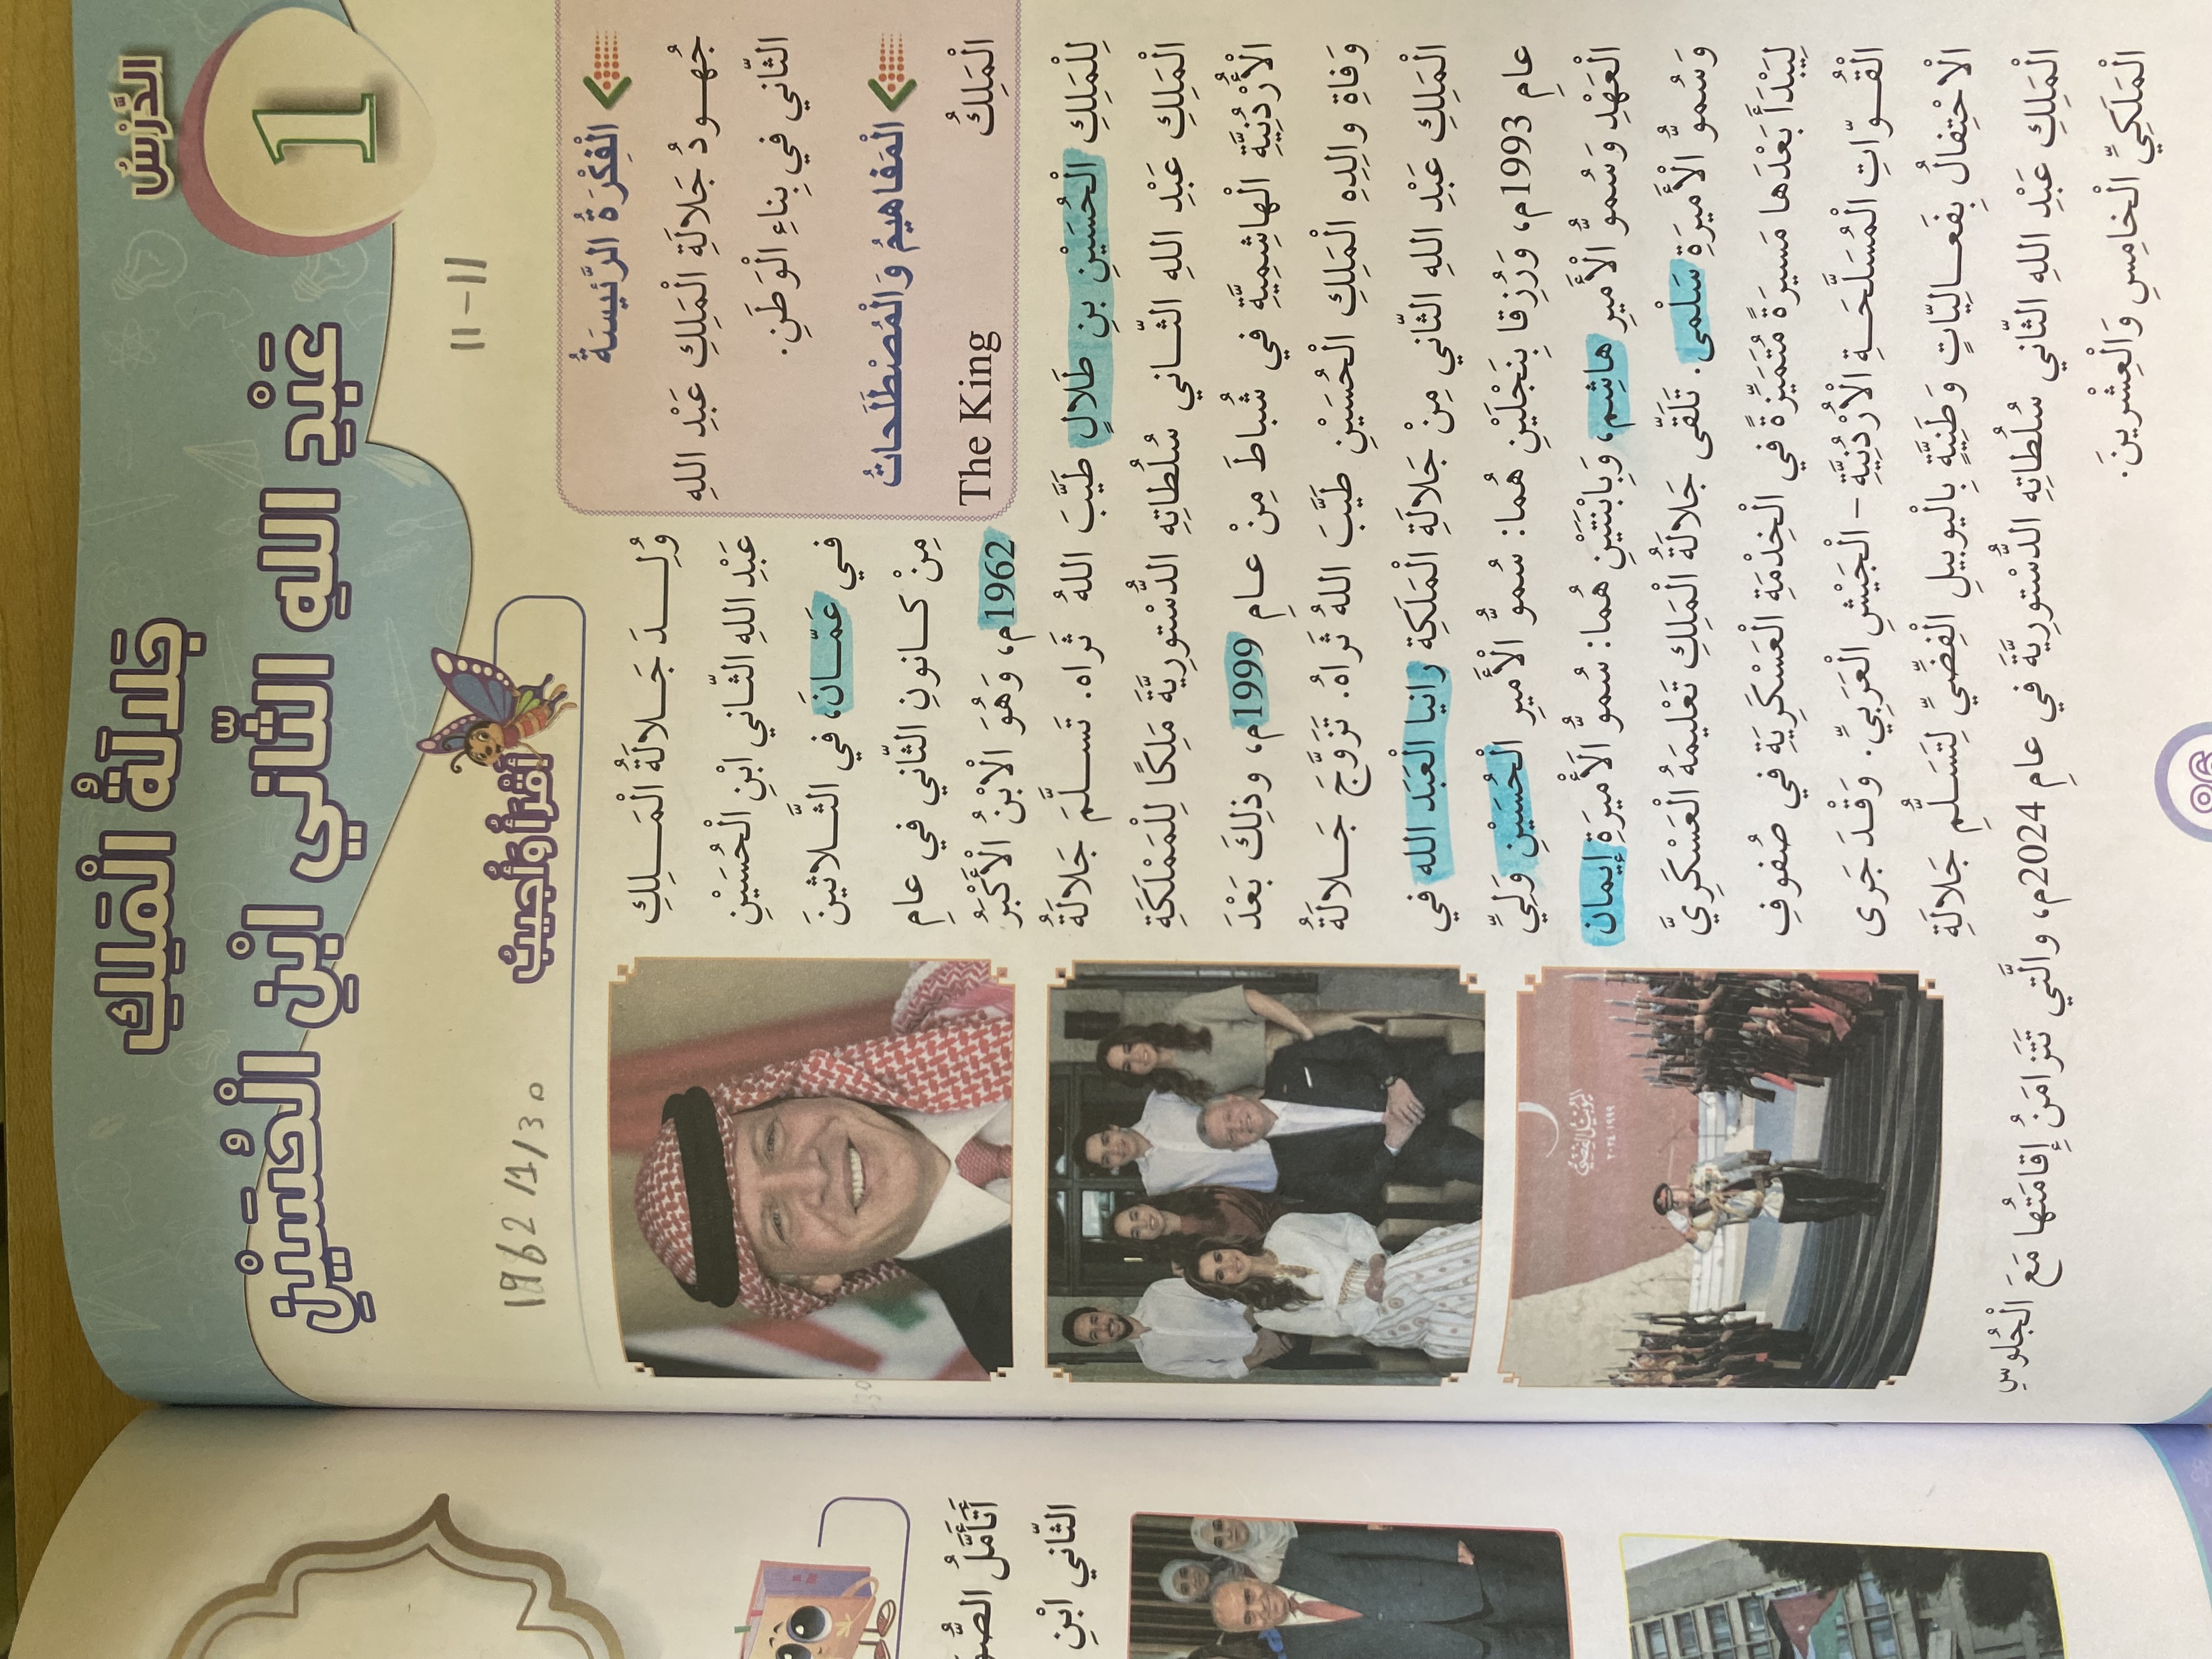 الدَّرْسُ
1
جَلالَةُ الْمَلِكِ
عَبْدِ اللهِ الثّاني ابْنِ الْحُسَيْنِ
11-11
1962 11/30
أَقْرَأُ وَأُجيبُ
الْفِكْرَةُ الرَّئيسَةُ
جُهودُ جَلالَةِ الْمَلِكِ عَبْدِ اللهِ
الثّاني في بِناءِ الْوَطَنِ.
الْمَفاهيمُ وَالْمُصْطَلَحاتُ
الْمَلِكُ The King
وُلِدَ جَلالَةُ الْمَلِكِ
عَبْدِ اللهِ الثّاني ابْنِ الْحُسَيْنِ
في عَمّانَ، في الثَّلاثينَ
مِنْ كانونِ الثّاني في عامِ
1962م، وَهُوَ الْابْنُ الْأَكْبَرُ
لِلْمَلِكِ الْحُسَيْنِ بنِ طَلالٍ طَيَّبَ اللهُ ثَراه. تَسَلَّمَ جَلالَةُ
الْمَلِكِ عَبْدِ اللهِ الثّاني سُلُطاتِهِ الدُّسْتورِيَّةَ مَلِكًا لِلْمَمْلَكَةِ
الْأُرْدُنِيَّةِ الْهاشِمِيَّةِ في شُباطَ مِنْ عامِ 1999م، وذلِكَ بَعْدَ
وَفاةِ والِدِهِ الْمَلِكِ الْحُسَيْنِ طَيَّبَ اللهُ ثَراهُ. تَزَوَّجَ جَلالَةُ
الْمَلِكِ عَبْدِ اللهِ الثّاني مِنْ جَلالَةِ الْمَلِكَةِ رانيا الْعَبْدَ الله في
عامِ 1993م، وَرُزِقا بِنَجْلَيْنِ هُما: سُمُوُّ الْأَميرِ الْحُسَيْنِ وَلِيِّ
الْعَهْدِ وَسُمُوُّ الْأَميرِ هاشِم، وَبِابْنَتَيْنِ هُما: سُمُوُّ الْأَميرَةِ إيمان
وَسُمُوُّ الْأَميرَةِ سَلْمى. تَلَقّى جَلالَةُ الْمَلِكِ تَعْليمَهُ الْعَسْكَرِيَّ
لِيَبْدَأَ بَعْدَها مَسيرَةً مُتَمَيِّزَةً في الْخِدْمَةِ الْعَسْكَرِيَةِ في صُفوفِ
الْقُوّاتِ الْمُسَلَّحَةِ الْأُرْدُنِيَّةِ - الْجَيْشِ الْعَرَبِيِّ. وَقَدْ جَرى
الْاحْتِفالُ بِفَعالِيّاتٍ وَطَنِيَّةٍ بِالْيوبيلِ الْفِضِّيِّ لِتَسَلُّمِ جَلالَةِ
الْمَلِكِ عَبْدِ اللهِ الثّاني سُلُطاتِهِ الدُّسْتورِيَّةَ في عامِ 2024م، والَّتي تَتَزامَنُ إقامَتُها مَعَ الْجُلوسِ
الْمَلَكِيِّ الْخامِسِ وَالْعِشْرينَ.
اليوبيل الفضي
١٩٩٩ ٢٠٢٤
أَتَأَمَّلُ
الثّاني ابْنِ